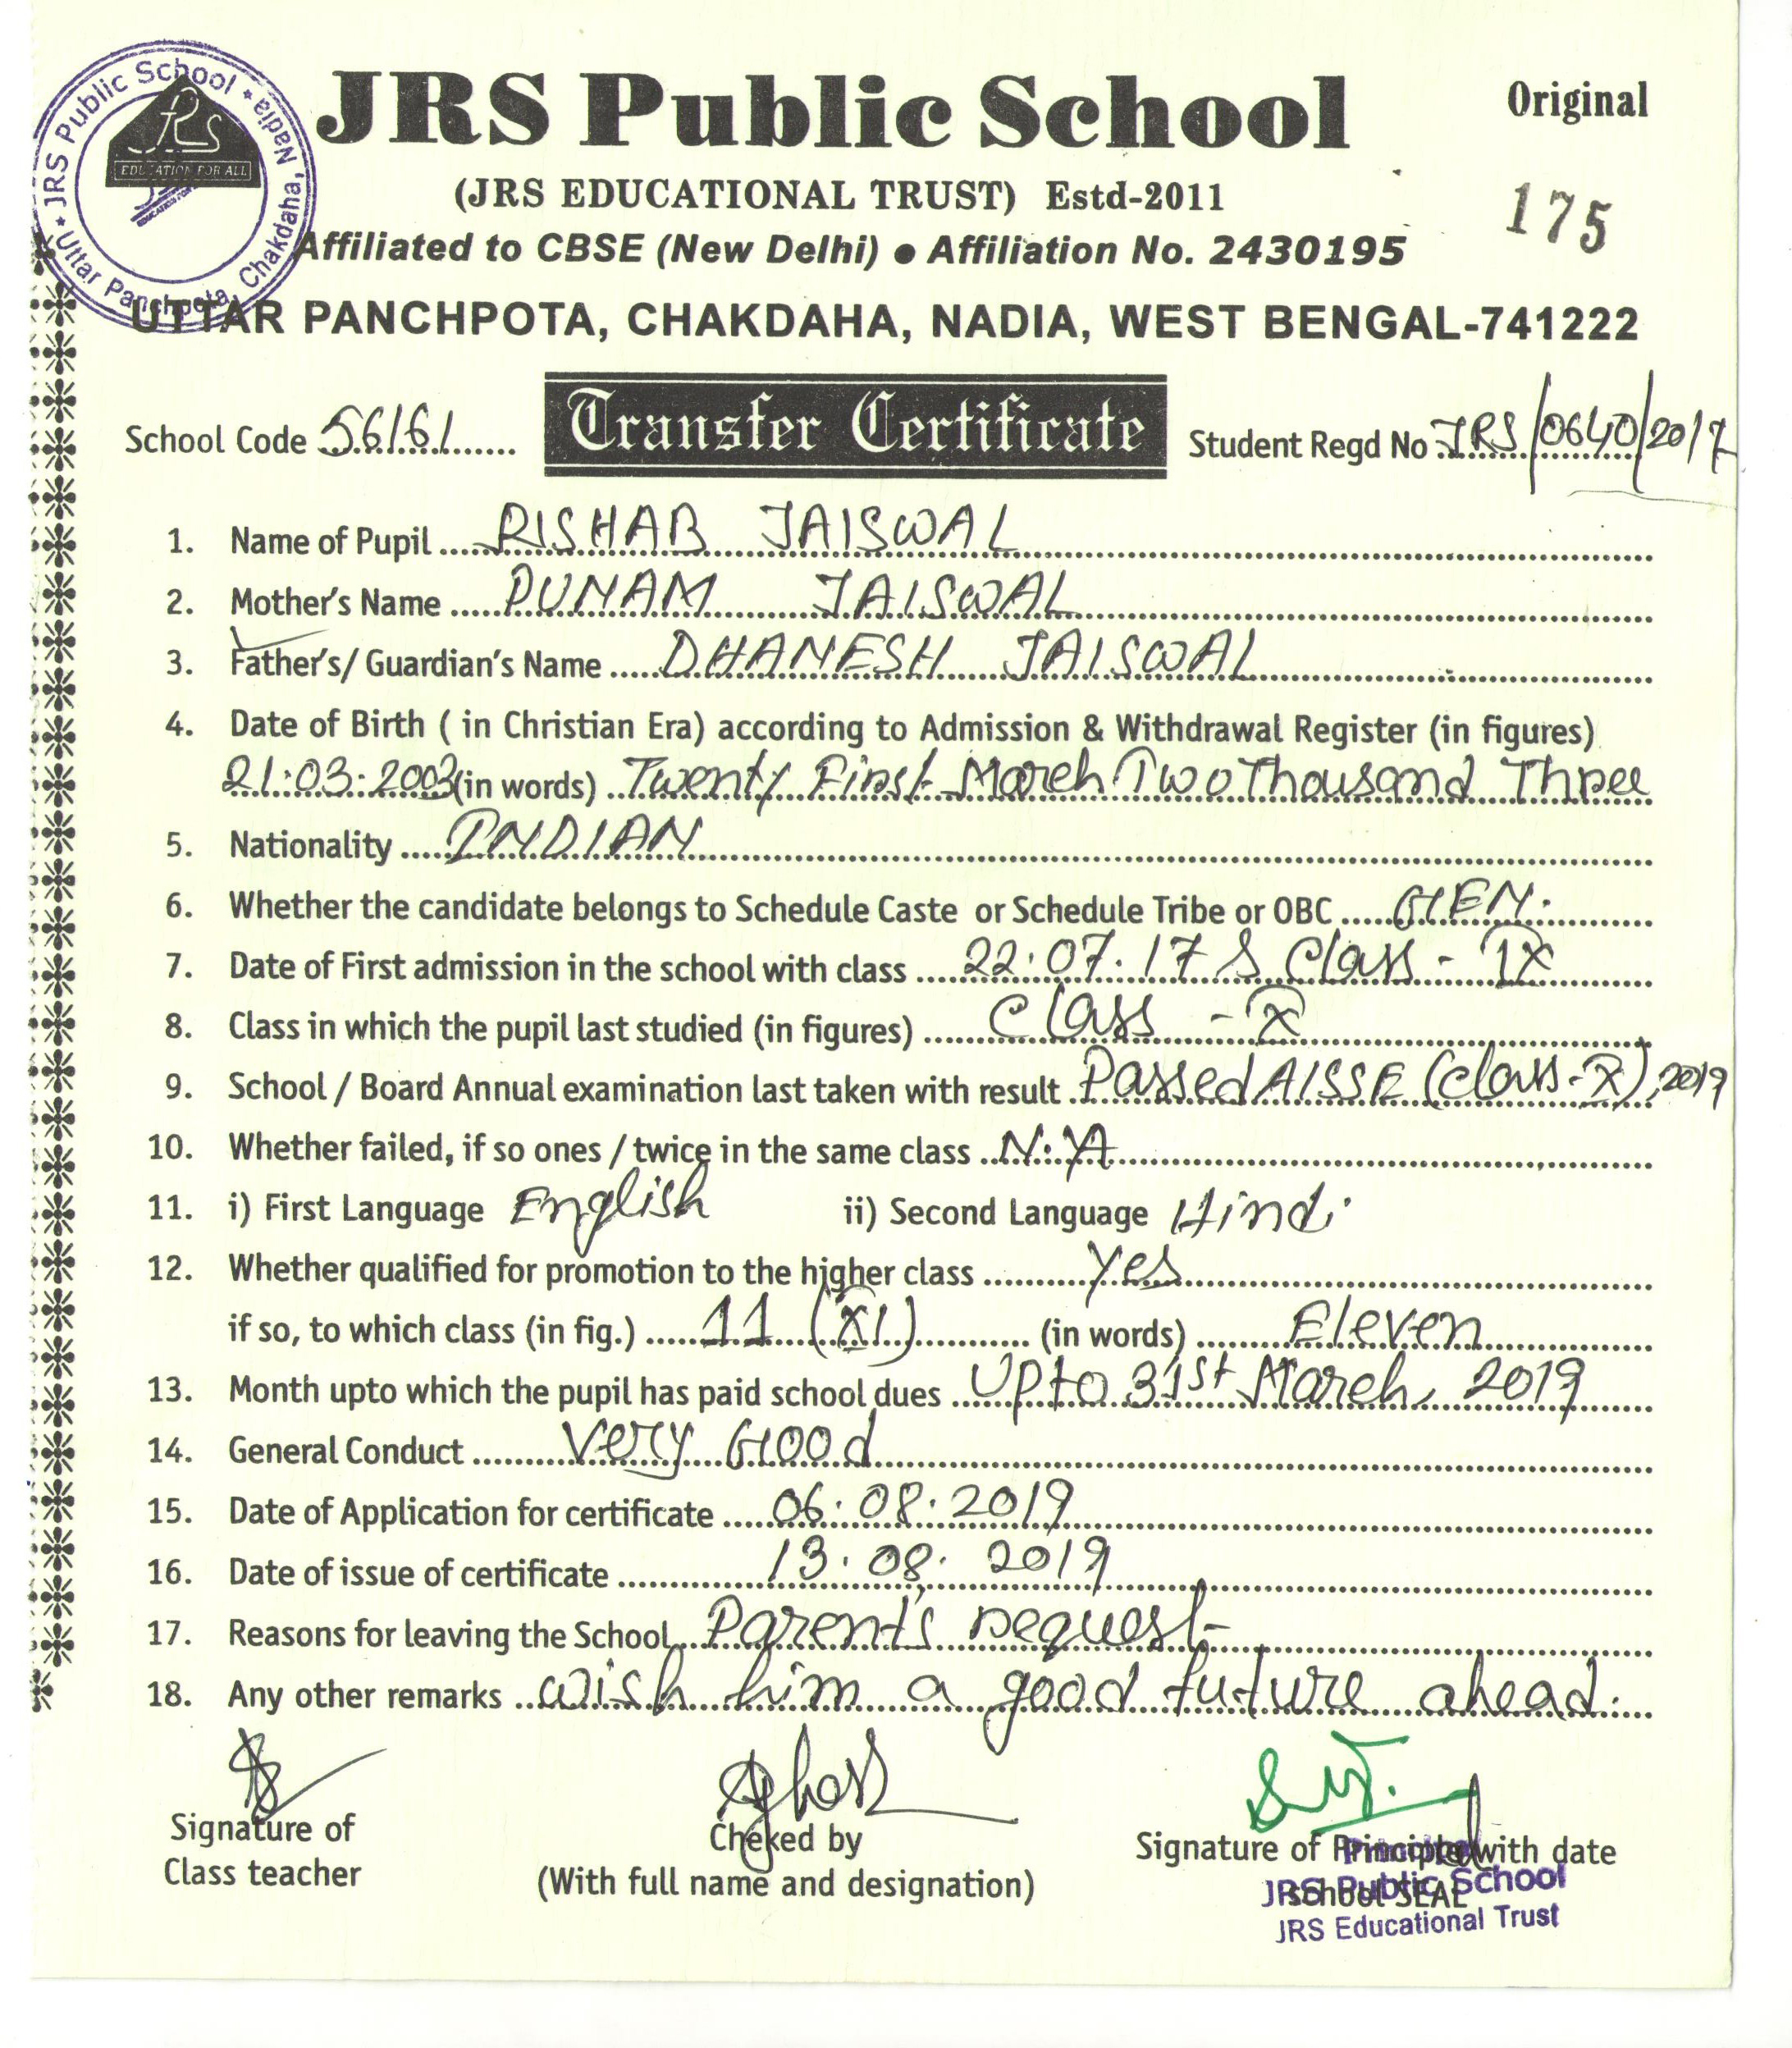 JRS Public School
Original
(JRS EDUCATIONAL TRUST) Estd-2011
175
Affiliated to CBSE (New Delhi) ● Affiliation No. 2430195
UTTAR PANCHPOTA, CHAKDAHA, NADIA, WEST BENGAL-741222
★ JRS Public School ★ Uttar Panchpota, Chakdaha, Nadia
JRS
EDUCATION FOR ALL
School Code 56161
Transfer Certificate
Student Regd No JRS/0640/2017
1. Name of Pupil RISHAB JAISWAL
2. Mother's Name PUNAM JAISWAL
3. Father's/ Guardian's Name DHANESH JAISWAL
4. Date of Birth ( in Christian Era) according to Admission & Withdrawal Register (in figures)
21:03:2003 (in words) Twenty First March Two Thousand Three
5. Nationality INDIAN
6. Whether the candidate belongs to Schedule Caste or Schedule Tribe or OBC GEN.
7. Date of First admission in the school with class 22:07:17 & Class - IX
8. Class in which the pupil last studied (in figures) Class - X
9. School / Board Annual examination last taken with result Passed AISSE (Class-X), 2019
10. Whether failed, if so ones / twice in the same class N.A
11. i) First Language English ii) Second Language Hindi
12. Whether qualified for promotion to the higher class Yes
if so, to which class (in fig.) 11 (XI) (in words) Eleven
13. Month upto which the pupil has paid school dues Upto 31st March, 2019
14. General Conduct Very Good
15. Date of Application for certificate 06.08.2019
16. Date of issue of certificate 13.08.2019
17. Reasons for leaving the School Parent's request
18. Any other remarks wish him a good future ahead.
Signature of
Class teacher
Cheked by
(With full name and designation)
Signature of Principal with date
school SEAL
Principal
JRS Public School
JRS Educational Trust